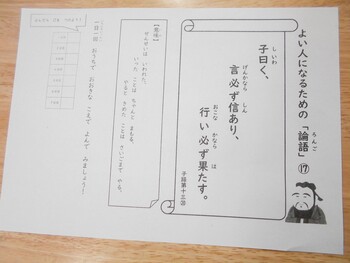 よい人になるための「論語」⑰
子曰く、
言必ず信あり、
行い必ず果たす。
子路第十三⑳
【意味】
せんせいは いわれた。
いった ことは ちゃんと まもる。
やると きめた ことは さいごまで やる。
一日一回 おうちで おおきな こえで よんで みましょう！